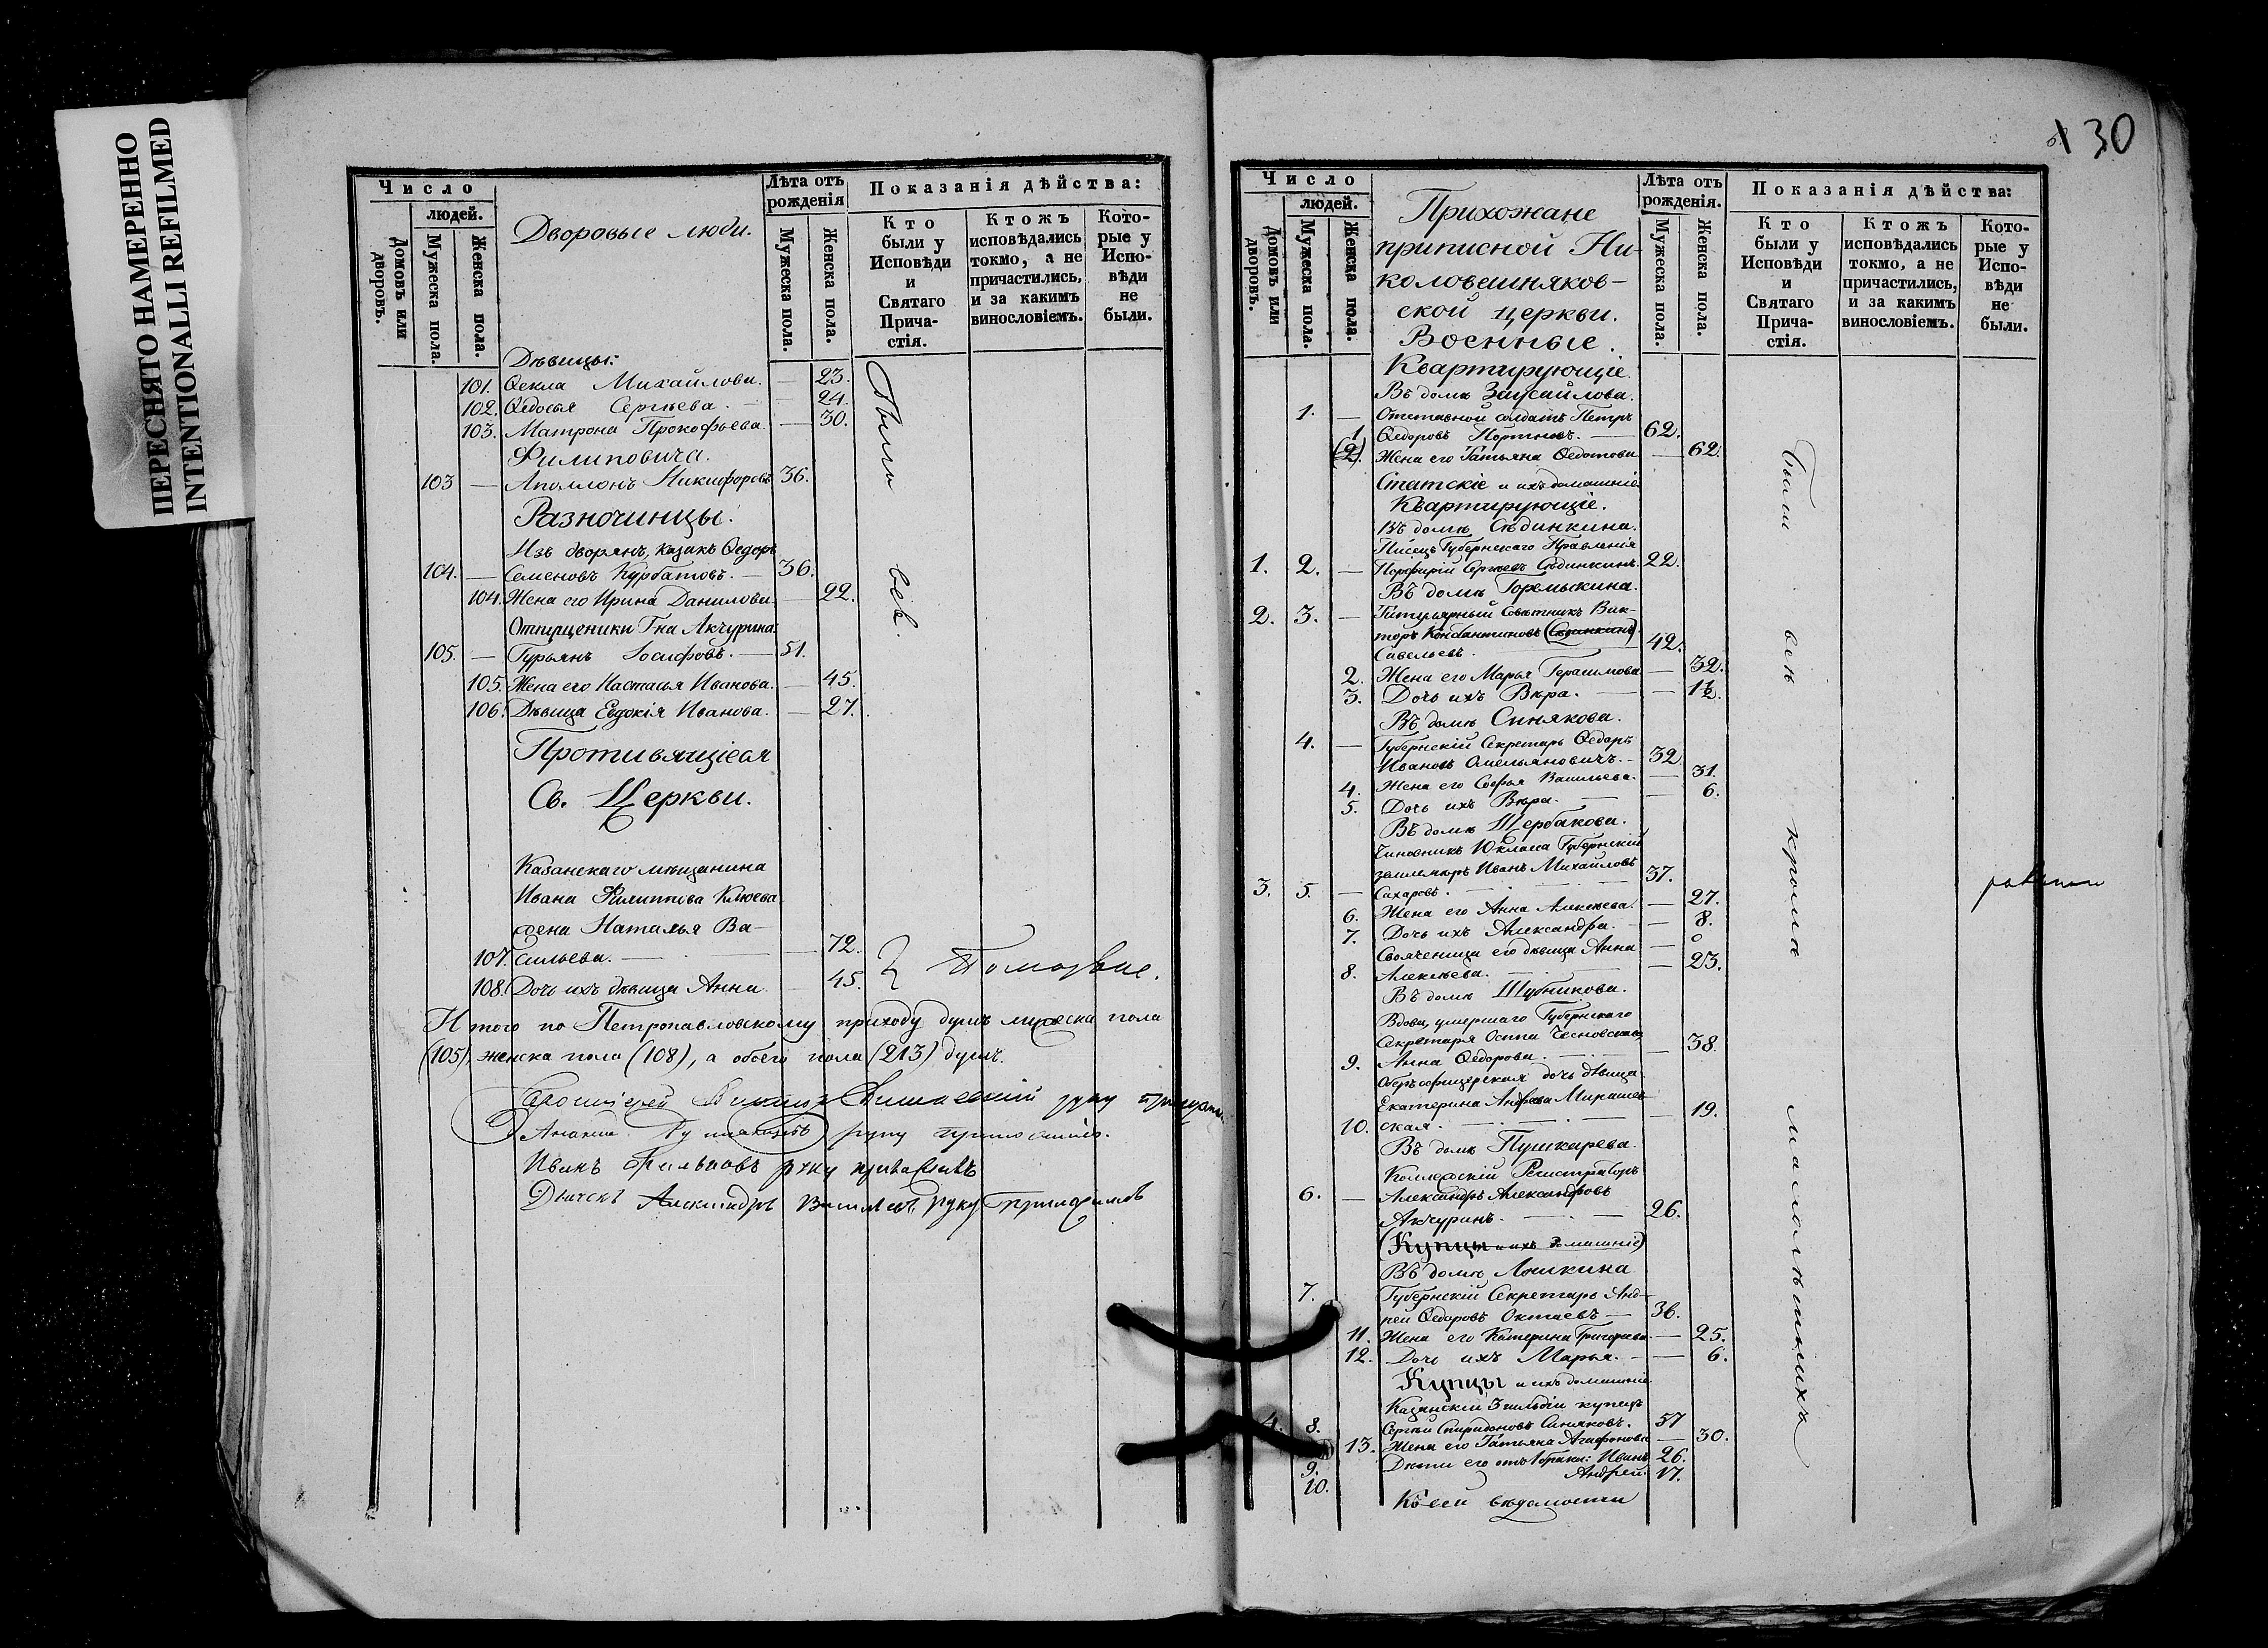 ПЕРЕСНЯТО НАМЕРЕННО
INTENTIONALLI REFILMED
Число
людей.
Домовъ или дворовъ.
Мужеска пола.
Женска пола.
Дворовые люди.
Лѣта отъ рожденія
Мужеска пола.
Женска пола.
Показанія дѣйства:
Кто были у Исповѣди и Святаго Прича-стія.
Ктожъ исповѣдались токмо, а не причастились, и за какимъ винословіемъ.
Кото-рые у Испо-вѣди не были.
Дѣвицы:
101. Ѳекла Михайлова. — 23.
102. Ѳедосья Сергѣева. — 24.
103. Матрона Прокофьева. — 30.
Филиповича.
103 — Аполлонъ Никифоровъ 36.
Разночинцы.
Изъ дворянъ, казакъ Ѳедоръ
104. — Семеновъ Курбатовъ. — 36.
104. Жена его Ирина Данилова. — 22.
Отпущеники Гна Акчурина:
105. — Гурьянъ Іосифовъ. — 51.
105. Жена его Настасья Иванова. — 45.
106. Дѣвица Евдокія Иванова. — 27.
Были всѣ.
Противящіеся
Св. Церкви.
Казанскаго мѣщанина
Ивана Филиппова Клюева
жена Наталья Ва-
107. сильева. — 72.
108. Дочь ихъ дѣвица Анна — 45.
Поморские.
Итого по Петропавловскому приходу душъ мужеска пола
(105), женска пола (108), а обоего пола (213) душъ.
Протоіерей Викторъ Вишневскій руку приложилъ
руку приложилъ.
Иванъ руку приложилъ
Дьячекъ Александръ Васильевъ руку приложилъ
130
Число
людей.
Домовъ или дворовъ.
Мужеска пола.
Женска пола.
Прихожане
приписной Ни-
коловешняков-
ской церкви.
Военные.
Лѣта отъ рожденія.
Мужеска пола.
Женска пола.
Показанія дѣйства:
Кто были у Исповѣди и Святаго Прича-стія.
Ктожъ исповѣдались токмо, а не причастились, и за какимъ винословіемъ.
Кото-рые у Испо-вѣди не были.
Квартирующіе.
Въ домѣ Заусайлова.
1. — Отставной солдатъ Петръ
1. Ѳедоровъ Портновъ. — 62.
(2). Жена его Татьяна Ѳедотова — 62.
Статскіе и ихъ домашніе
Квартирующіе.
Въ домѣ Сѣдинкина.
Писецъ Губернскаго Правленія
1. 2. — Порфирій Сергѣевъ Сѣдинкинъ. 22.
Въ домѣ Горемыкина.
2. 3. — Титулярный Совѣтникъ Вик-
торъ Константиновъ (Сѣдинкинъ).
Савельевъ. 42.
2. Жена его Марья Герасимова — 32.
3. Дочь ихъ Вѣра. — 1½.
Въ домѣ Синякова.
4. — Губернскій Секретарь Ѳедоръ
Ивановъ Омельяновичъ. — 32.
4. Жена его Софья Васильева. — 31.
5. Дочь ихъ Вѣра. — 6.
Въ домѣ Щербакова.
Чиновникъ 10 класса Губернскій
землемѣръ Иванъ Михайловъ
3. 5. — Сахаровъ. — 37.
6. Жена его Анна Алексѣева. — 27.
7. Дочь ихъ Александра. — 8.
Свояченица его дѣвица Анна
8. Алексѣева. — 23.
Въ домѣ Шубникова.
Вдова, умершаго Губернскаго
Секретаря Осипа Чесновскаго,
9. Анна Ѳедорова. — 38.
Оберъофицерская дочь дѣвица
Екатерина Андреева Мирашев-
10. ская. — 19.
Въ домѣ Пушкарева.
Коллежскій Регистраторъ
6. — Александръ Александровъ
Акчуринъ. — 26.
(Купцы и ихъ домашніе)
Въ домѣ Ляпкина
7. Губернскій Секретарь Анд-
рей Ѳедоровъ Октаевъ — 36.
11. Жена его Катерина Григорьева — 25.
12. Дочь ихъ Марья. — 6.
Купцы и ихъ домашніе
Казанскій 3 гильдіи купецъ
4. 8. Сергѣй Спиридоновъ Синяковъ. 57
13. Жена его Татьяна Агафонова — 30.
9. Дѣти его отъ 1 брака: Иванъ 26.
10. Андрей. 17.
Къ сей вѣдомости
были всѣ кромѣ малолѣтнихъ